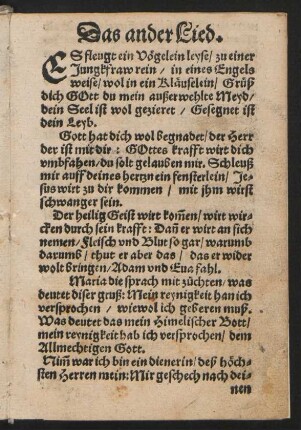 Das ander Lied.
ES fleugt ein Vögelein leyse / zu einer
Jungkfraw rein / in eines Engels
weise / wol in ein Kläuselein / Grüß
dich GOtt du mein außerwehlte Meyd /
dein Seel ist wol gezieret / Gesegnet ist
dein Leyb.
Gott hat dich wol begnadet / der Herr
der ist mit dir: GOttes krafft wirt dich
vmbfahen / du solt gelauben mir. Schleuß
mir auff deines hertzn ein fensterlein / Je-
sus wirt zu dir kommen / mit jhm wirst
schwanger sein.
Der heilig Geist wirt kom̃en / wirt wir-
cken durch sein krafft: Dañ er wirt an sich
nemen / Fleisch vnd Blut so gar / warumb
darumb / thut er aber das / das er wider
wolt bringen / Adam vnd Eua fahl.
Maria die sprach mit züchten / was
deutet diser gruß: Mein reynigkeit han ich
versprochen / wie wol ich geberen muß.
Was deutet das mein Himelischer Bott /
mein reynigkeit hab ich versprochen / dem
Allmechtigen Gott.
Nim̃ war ich bin ein dienerin / deß höch-
sten Herren mein: Mir geschech nach dei-
nen